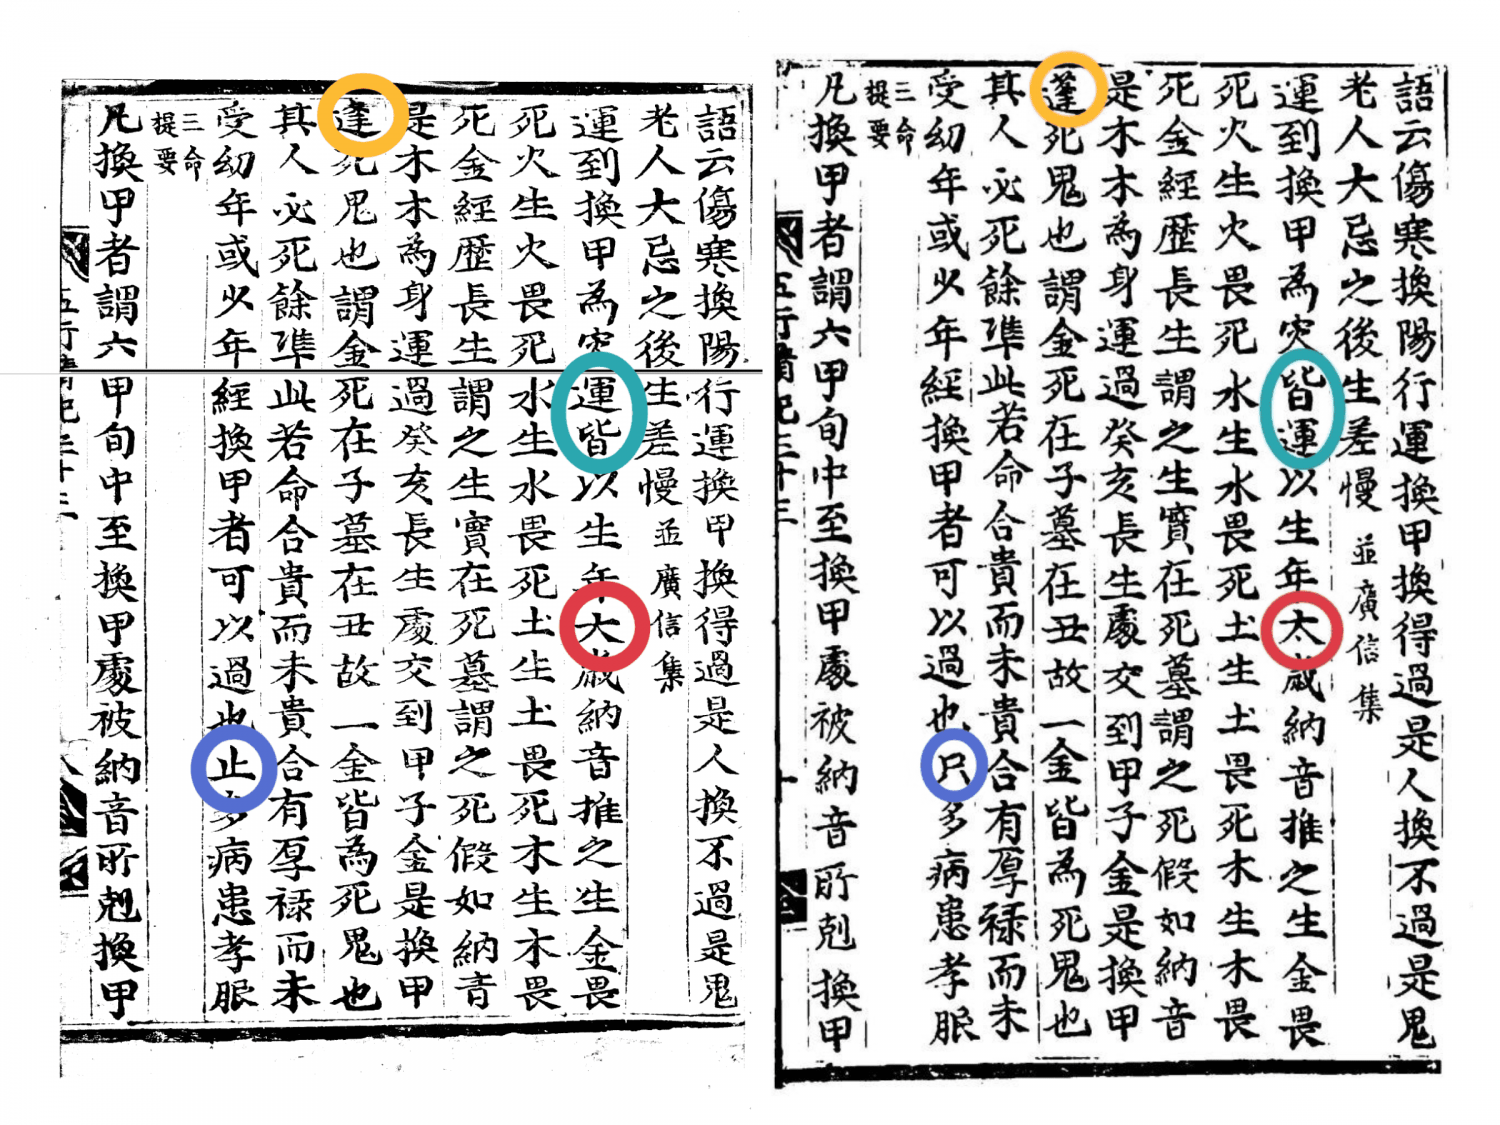 語云傷寒換陽行運換甲換得過是人換不過是鬼
老人大忌之後生差慢 並廣信集
運到換甲為灾運皆以生年大歲納音推之生金畏
死火生火畏死水生水畏死土生土畏死木生木畏
死金經歷長生謂之生寶在死墓謂之死假如納音
是木木為身運過癸亥長生處交到甲子金是換甲
逢死鬼也謂金死在子墓在丑故一金皆為死鬼也
其人必死餘準此若命合貴而未貴合有厚祿而未
受幼年或少年經換甲者可以過也止多病患孝服
三命
提要
凡換甲者謂六甲旬中至換甲處被納音所剋換甲
五行精紀三十三
語云傷寒換陽行運換甲換得過是人換不過是鬼
老人大忌之後生差慢 並廣信集
運到換甲為灾皆運以生年太歲納音推之生金畏
死火生火畏死水生水畏死土生土畏死木生木畏
死金經歷長生謂之生寶在死墓謂之死假如納音
是木木為身運過癸亥長生處交到甲子金是換甲
蓬死鬼也謂金死在子墓在丑故一金皆為死鬼也
其人必死餘準此若命合貴而未貴合有厚祿而未
受幼年或少年經換甲者可以過也只多病患孝服
三命
提要
凡換甲者謂六甲旬中至換甲處被納音所剋換甲
五行精紀三十三